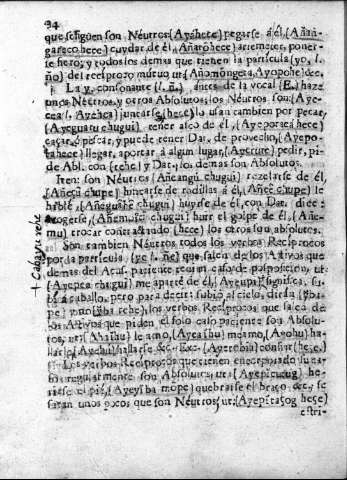 94
que se siguen son Neutros (Ayahece) pegarse à él, (Añan-
gareco hece) cuydar de él, (Añarõhece) arremeter, poner-
se hero; y todos los demas que tienen la particula (yo, l.
ño) del reciproco mutuo ut (Añomõngera, Ayopohe) &c.
La y. consonante (l. ñ.) antes de la vocal (E.) haze
unos Neutros, y otros Absolutos; los Neutros son: (Aye-
cea l. Ayehea) juntarse (hece) lo usan tambien por pecar,
(Ayeguaru chugui) tener asco de él, (Ayeporaca hece)
caçar, ò pescar, y puede tener Dat. de provecho, (Ayepo-
tahece) llegar, aportar à algun lugar, (Ayerure) pedir, pi-
de Abl. con (hece) y Dat. los demas son Absolutos.
Iten: son Neutros (Añeangù chugui) rezelarse de él,
(Añeçũ chupe) hincarse de rodillas à él, (Añeẽ chupe) le
hable, (Añeguahẽ chugui) huyrse de él, con Dat. dice:
acogerse, (Añemoĩ chugui) huir el golpe de él, (Añe-
mu) trocar contratando (hece) los otros son absolutos.
Son tambien Neutros todos los verbos Reciprocos
por la particula (ye l. ñe) que salen de los Activos que
demas del Acus. paciente regian caso de posposicion, ut:
(Ayepea chugui) me aparté de él, (Ayeupi) significa, su-
bi à caballo, pero para decir: subiò al cielo, dirán (yba-
pe) y no (yba rehe), los verbos Reciprocos que salen de
los Activos que piden el solo caso paciente son Absolu-
tos, ut: (Ahaihu) le amo, (Ayeaihu) me amo, (Ayohu) ha-
llarlo, (Ayehu) hallarse &c. Exc. (Ayerobia) confiar (hece.)
Los verbos Reciprocos que tienen encorporado su nom-
bre regularmente son Absolutos, ut: (Ayepicutug) he-
rirse el pie, (Ayeyyba mope) quebrarse el braço &c. se
sacan unos pocos que son Neutros, ut: (Ayepitaçog hece)
estri-
+ Cabayu rehe